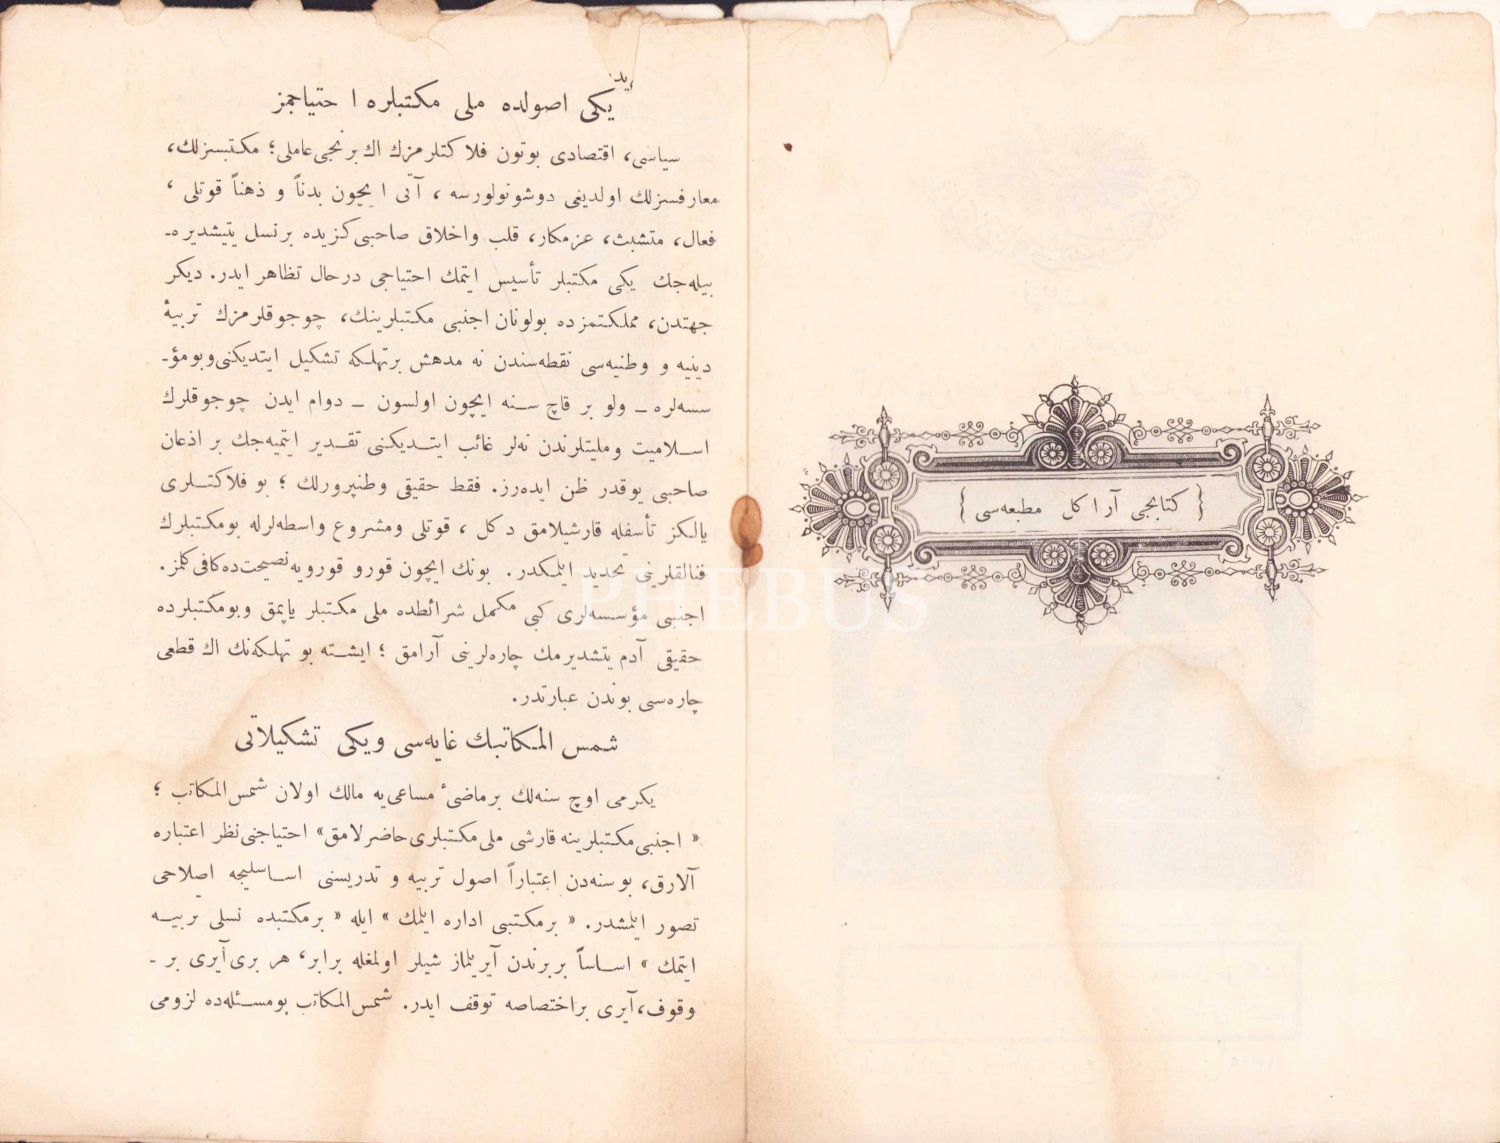 یكی اصولده ملی مكتبلره احتیاجمز
سیاسی، اقتصادی بوتون فلاكتلرمزك اك برنجی عاملی؛ مكتبسزلك،
معارفسزلك اولدیغی دوشونولورسه ، آتی ایچون بدناً و ذهناً قوتلی ،
فعال، متشبث، عزمكار، قلب واخلاق صاحبی كزیده برنسل یتیشدیره‌ـ
بیله‌جك یكی مكتبلر تأسیس ایتمك احتیاجی درحال تظاهر ایدر. دیكر
جهتدن، مملكتمزده بولونان اجنبی مكتبلرینك، چوجوقلرمزك تربیۀ
دینیه و وطنیه‌سی نقطه‌سندن نه مدهش برتهلكه تشكیل ایتدیكنی وبومؤـ
سسه‌لره ـ ولو بر قاچ سنه ایچون اولسون ـ دوام ایدن چوجوقلرك
اسلامیت وملیتلرندن نه‌لر غائب ایتدیكنی تقدیر ایتمیه‌جك بر اذعان
صاحبی یوقدر ظن ایده‌رز. فقط حقیقی وطنپرورلك ؛ بو فلاكتلری
یالكز تأسفله قارشیلامق دكل ، قوتلی ومشروع واسطه‌لرله بومكتبلرك
فنالقلرینی تحدید ایتمكدر. بونك ایچون قورو قورویه نصیحت‌ده كافی كلمز.
اجنبی مؤسسه‌لری كبی مكمل شرائطده ملی مكتبلر یاپمق وبومكتبلرده
حقیقی آدم یتشدیرمك چاره‌لرینی آرامق ؛ ایشته بو تهلكه‌نك اك قطعی
چاره‌سی بوندن عبارتدر.
شمس المكاتبك غایه‌سی ویكی تشكیلاتی
یكرمی اوچ سنه‌لك برماضیٔ مساعی‌یه مالك اولان شمس المكاتب ؛
« اجنبی مكتبلرینه قارشی ملی مكتبلری حاضرلامق» احتیاجنی نظر اعتباره
آلارق، بوسنه‌دن اعتباراً اصول تربیه و تدریسنی اساسلیجه اصلاحی
تصور ایتمشدر. « برمكتبی اداره ایتمك » ایله « برمكتبده نسلی تربیه
ایتمك » اساساً بربرندن آیریلماز شیلر اولمغله برابر، هر بری آیری بر ـ
وقوف، آیری براختصاصه توقف ایدر. شمس المكاتب بومسئله‌ده لزومی
{ كتابجی آراكل مطبعه‌سی }
PHEBUS